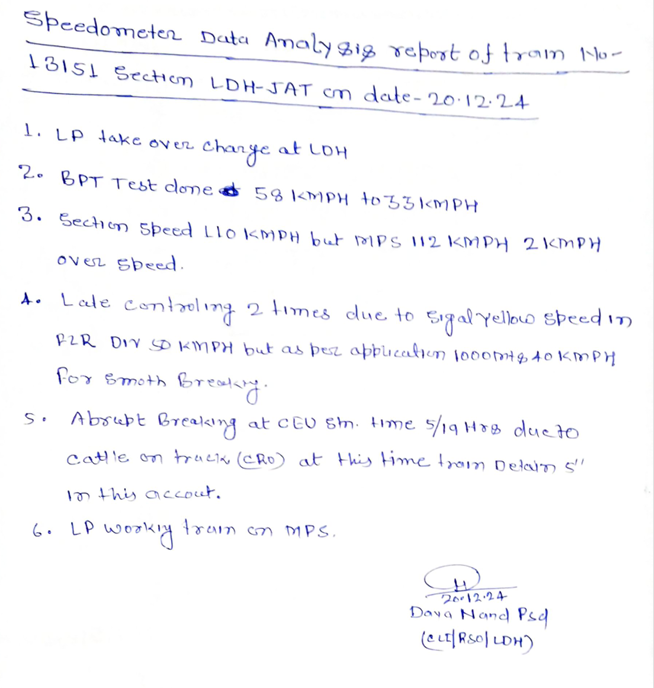 Speedometer Data Analysis report of train No-
13151 Section LDH-JAT on date-20.12.24
1. LP take over charge at LDH
2. BPT Test done 58 KMPH to 33 KMPH
3. Section Speed 110 KMPH but MPS 112 KMPH 2 KMPH
over speed.
4. Late controling 2 times due to sigal yellow speed in
FZR DIV 50 KMPH but as per application 1000mt 40 KMPH
For smoth Breaking.
5. Abrupt Breaking at CEU Stn. time 5/19 Hrs due to
cattle on track (CRO) at this time train Detain 5"
in this accout.
6. LP workig train on MPS.
20.12.24
Daya Nand Psd
(CLI/RSO/LDH)